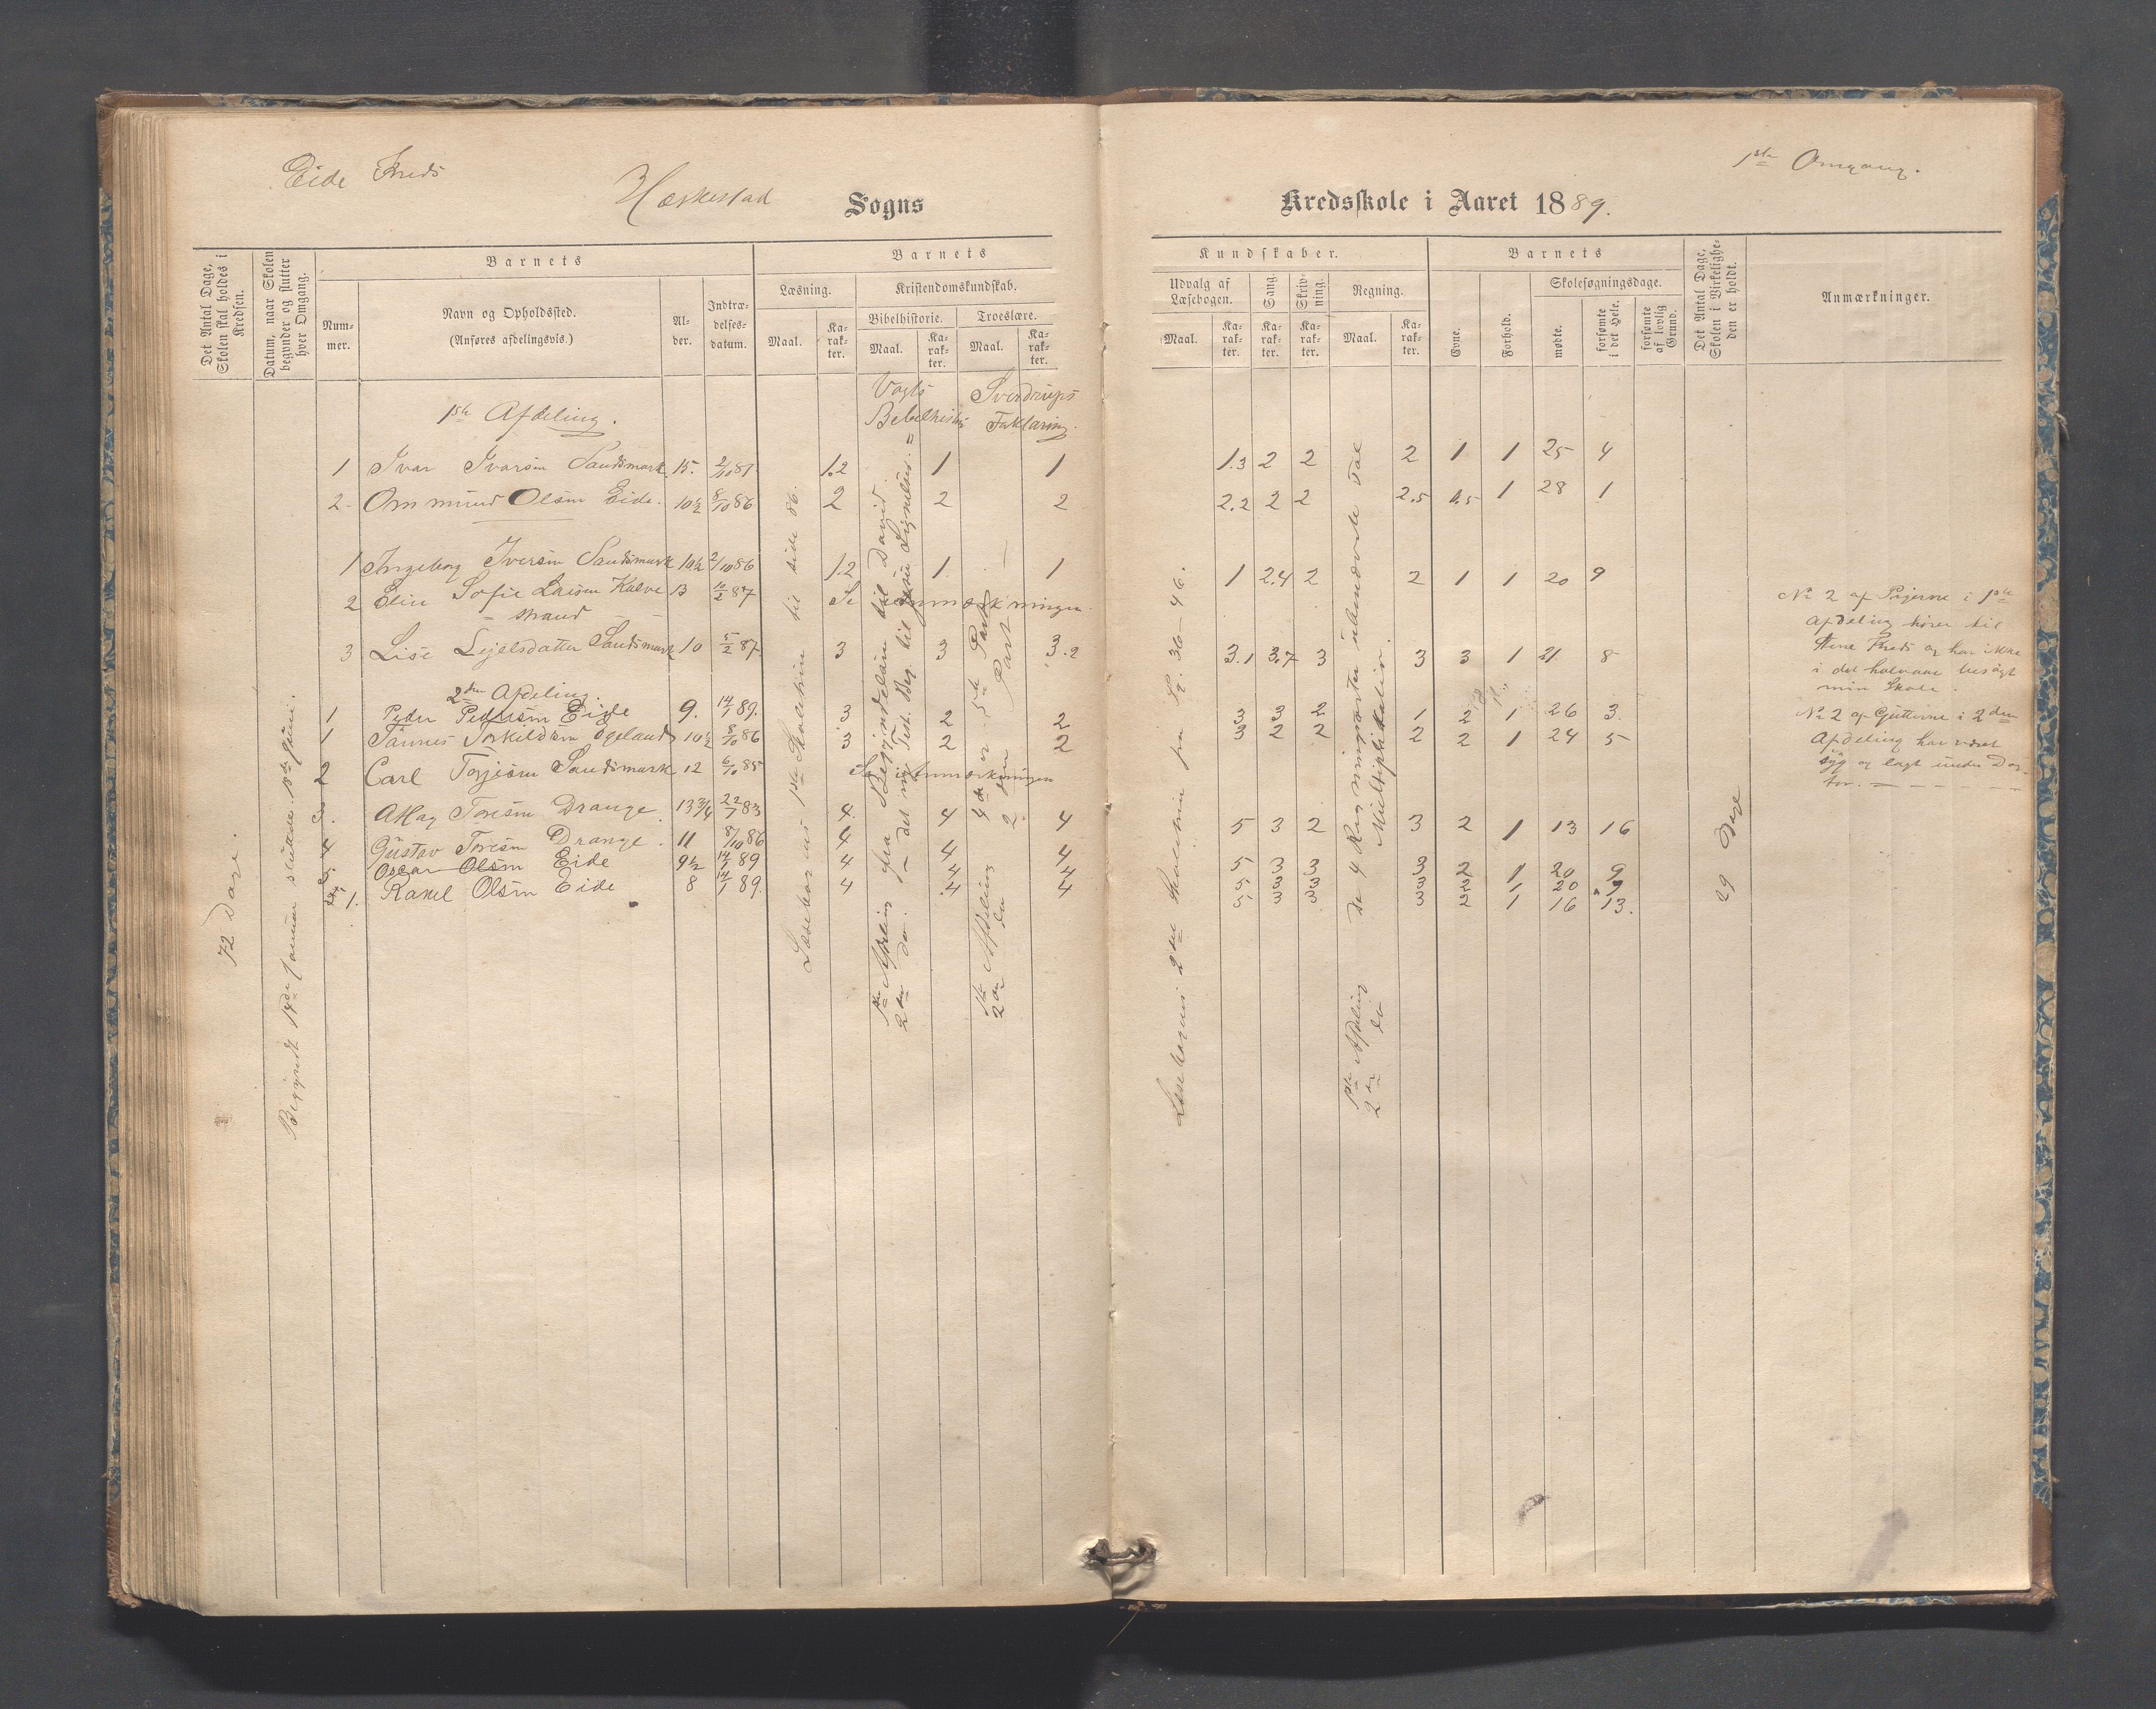 Eide Kreds
Heskestad Sogns
Kredsskole i Aaret 1889.
1ste Omgang.
Det Antal Dage, Skolen skal holdes i Kredsen.
Datum, naar Skolen begynder og slutter hver Omgang.
Barnets
Num-mer.
Navn og Opholdssted.
(Anføres afdelingsvis.)
Al-der.
Indtræ-delses-datum.
Barnets
Læsning.
Maal.
Ka-rak-ter.
Kristendomskundskab.
Bibelhistorie.
Maal.
Ka-rak-ter.
Troeslære.
Maal.
Ka-rak-ter.
Kundskaber.
Udvalg af Læsebogen.
Maal.
Ka-rak-ter.
Sang.
Ka-rak-ter.
Skriv-ning.
Ka-rak-ter.
Regning.
Maal.
Ka-rak-ter.
Barnets
Evne.
Forhold.
Skolesøgningsdage.
mødte.
forsømte i det Hele.
forsømte af lovlig Grund.
Det Antal Dage, Skolen i Virkelighe-den er holdt.
Anmærkninger.
72 Dage.
Begyndt 14de Januar sluttede 18de Juni.
Vogts Bibelhist.
Sverdrups Forklaring.
1ste Afdeling.
1 Ivar Ivarsen Sandsmark 15. 2/10 81 1.2 1 1 1.3 2 2 2 1 1 25 4
2 Ommund Olsen Eide. 10½ 8/10 86 2 2 2 2.2 2 2 2.5 1.5 1 28 1
1 Ingeborg Iversen Sandsmark 10½ 2/10 86 1.2 1 1 1 2.4 2 2 1 1 20 9
2 Elin Sofie Larsen Kalvestrand 13 10/2 87 Se Anmærkningen
3 Lise Lejelsdatter Sandsmark 10 5/2 87 3 3 3.2 3.1 3.7 3 3 3 1 21 8
2den Afdeling.
1 Peder Pedersen Eide 9. 14/1 89. 3 2 2 3 3 2 1 2 1 26 3
1 Tønnes Torkildsen Egeland 10½ 8/10 86 3 2 2 3 2 2 2 2 1 24 5
2 Carl Torjesen Sandsmark 12 6/10 85 Se Anmærkningen
3. Aslag Toresen Drange 13¾ 22/7 83 4 4 4 5 3 2 3 2 1 13 16
4 Gustav Toresen Drange. 11 8/10 86 4 4 4 5 3 3 3 2 1 20 9
5 Oscar Olsen Eide 9½ 14/1 89 4 4 4 5 3 3 3 2 1 20 9
1. Rakel Olsen Eide 8 14/1 89. 4 4 4 5 3 3 3 2 1 16 13.
Læsebogens 1ste Skoletrin til side 86.
1ste Afdeling fra Begyndelsen til David.
2den do. i det ny Test. Beg. til Jesu Lignelser.
1ste Afdeling 4de og 5te Part
2den do 2den Part
Læsebogens 2det Skoletrin fra St. 30-46.
1ste Afdeling de 4 Regningsarter i ubenævnte Tal
2den do Multiplikation.
29 Dage
No 2 af Pigerne i 1ste
Afdeling hører til
Kreds og har ikke
i det halvaar besøgt
min Skole.
No 2 af Gutterne i 2den
Afdeling har været
syg og lagt under Dog-
tor.